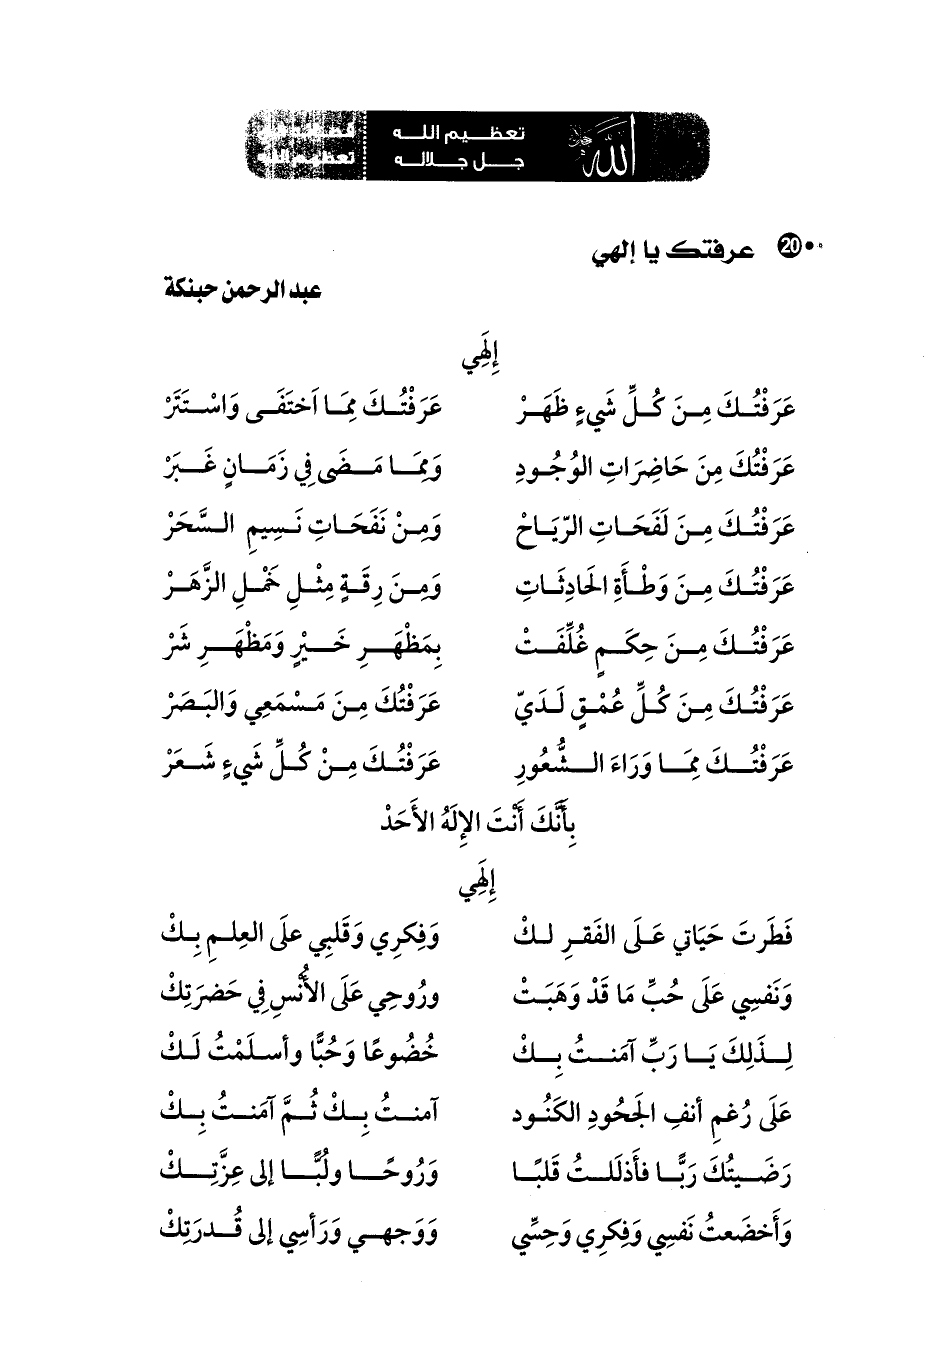 تعظيم الله
جل جلاله
تعظيم الله
20 عرفتك يا إلهي
عبد الرحمن حبنكة
إِلَهِي
عَرَفْتُكَ مِنَ كُلِّ شَيءٍ ظَهَرْ عَرَفْتُكَ مِمَّا اَختَفَى وَاسْتَتَرْ
عَرَفْتُكَ مِنَ حَاضِرَاتِ الوُجُودِ وَمِمَّا مَضَى فِي زَمَانٍ غَبَرْ
عَرَفْتُكَ مِنَ لَفَحَاتِ الرّيَاحْ وَمِنْ نَفَحَاتِ نَسِيمِ السَّحَرْ
عَرَفْتُكَ مِنَ وَطْأَةِ الحَادِثَاتِ وَمِنَ رِقَةٍ مِثْلِ خَمْلِ الزَّهَرْ
عَرَفْتُكَ مِنَ حِكَمٍ غُلِّفَتْ بِمَظْهَرِ خَيْرٍ وَمَظْهَرِ شَرْ
عَرَفْتُكَ مِنَ كُلِّ عُمْقٍ لَدَيّ عَرَفْتُكَ مِنَ مَسْمَعِي وَالبَصَرْ
عَرَفْتُكَ مِمَّا وَرَاءَ الشُّعُورِ عَرَفْتُكَ مِنْ كُلِّ شَيءٍ شَعَرْ
بِأَنَّكَ أَنْتَ الإِلَهُ الأَحَدْ
إِلَهِي
فَطَرتَ حَيَاتِي عَلَى الفَقرِ لكْ وَفِكرِي وَقَلبِي علَى العِلمِ بِكْ
وَنَفسِي عَلَى حُبِّ مَا قَدْ وَهَبَتْ ورُوحِي عَلَى الأُنْسِ فِي حَضرَتِكْ
لِذَلِكَ يَا رَبِّ آمَنتُ بِكْ خُضُوعًا وَحُبًّا وأسلَمْتُ لَكْ
عَلَى رُغمِ أنفِ الجَحُودِ الكَنُود آمَنتُ بِكْ ثُمَّ آمَنتُ بِكْ
رَضَيتُكَ رَبًّا فأَذلَلتُ قَلبًا وَرُوحًا ولُبًّا إلى عِزَّتِكْ
وَأَخضَعتُ نَفسِي وَفِكرِي وَحِسِّي وَوَجهِي وَرَأسِي إلى قُدرَتِكْ